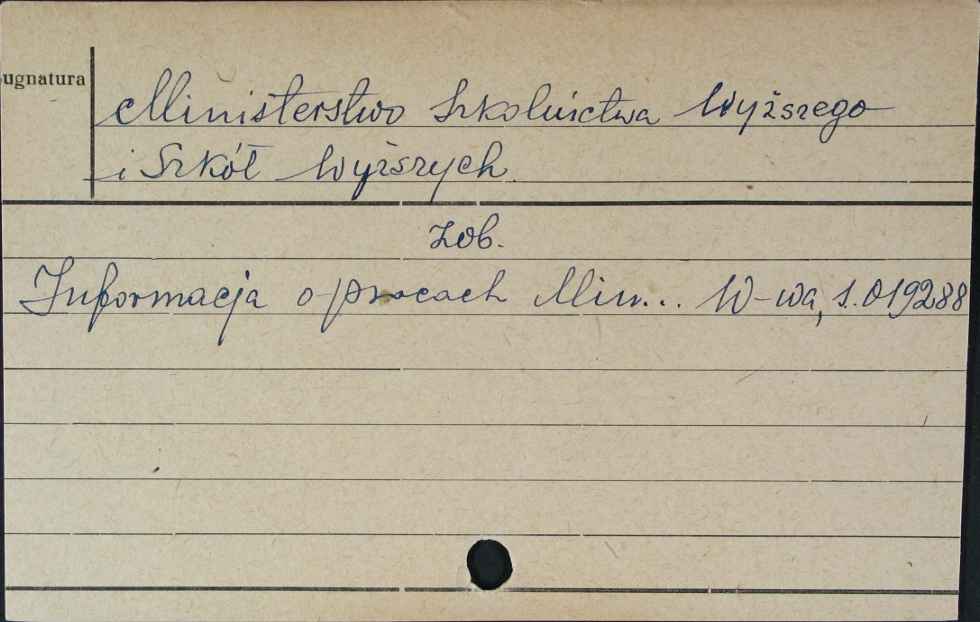 ugnatura
Ministerstwo Szkolnictwa Wyższego
i Szkół Wyższych
zob.
Informacja o pracach Min... W-wa, s. 019288